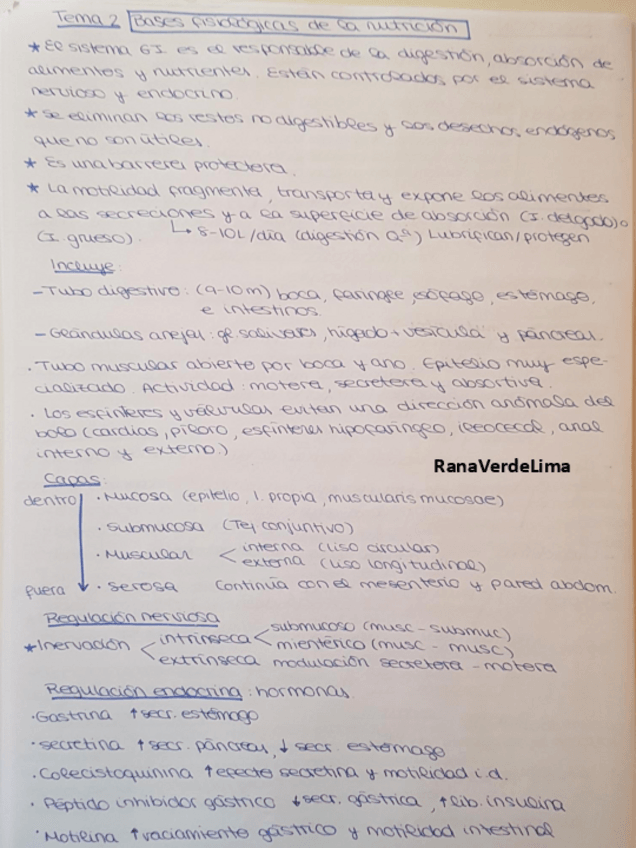 Tema 2 Bases fisiológicas de la nutrición
* El sistema GI. es el responsable de la digestión, absorción de
alimentos y nutrientes. Están controlados por el sistema
nervioso y endocrino.
* Se eliminan los restos no digestibles y los desechos endógenos
que no son útiles.
* Es una barrera protectora.
* La motilidad fragmenta, transporta y expone los alimentos
a las secreciones y a la superficie de absorción (I. delgado) o
(I. grueso). ↳ 8-10L/día (digestión Qª) Lubrifican/protegen
Incluye:
- Tubo digestivo: (9-10m) boca, faringe, esófago, estómago,
e intestinos.
- Glándulas anejas: gl salivares, hígado + vesícula y páncreas.
· Tubo muscular abierto por boca y ano. Epitelio muy espe-
cializado. Actividad: motora, secretora y absortiva.
· Los esfínteres y válvulas evitan una dirección anómala del
bolo (cardias, píloro, esfínteres hipofaríngeo, ileocecal, anal
interno y externo.)
RanaVerdeLima
Capas:
dentro · Mucosa (epitelio, l. propia, muscularis mucosae)
· Submucosa (Tej conjuntivo)
· Muscular < interna (liso circular)
externa (liso longitudinal)
fuera · Serosa Continúa con el mesenterio y pared abdom.
Regulación nerviosa
* Inervación < intrínseca < submucoso (musc - submuc)
mientérico (musc - musc)
extrínseca modulación secretora - motora
Regulación endocrina: hormonas
· Gastrina ↑ secr. estómago
· Secretina ↑ secr. páncreas, ↓ secr. estómago
· Colecistoquinina ↑ efecto secretina y motilidad i.d.
· Péptido inhibidor gástrico ↓ secr. gástrica, ↑ lib. insulina
· Motilina ↑ vaciamiento gástrico y motilidad intestinal